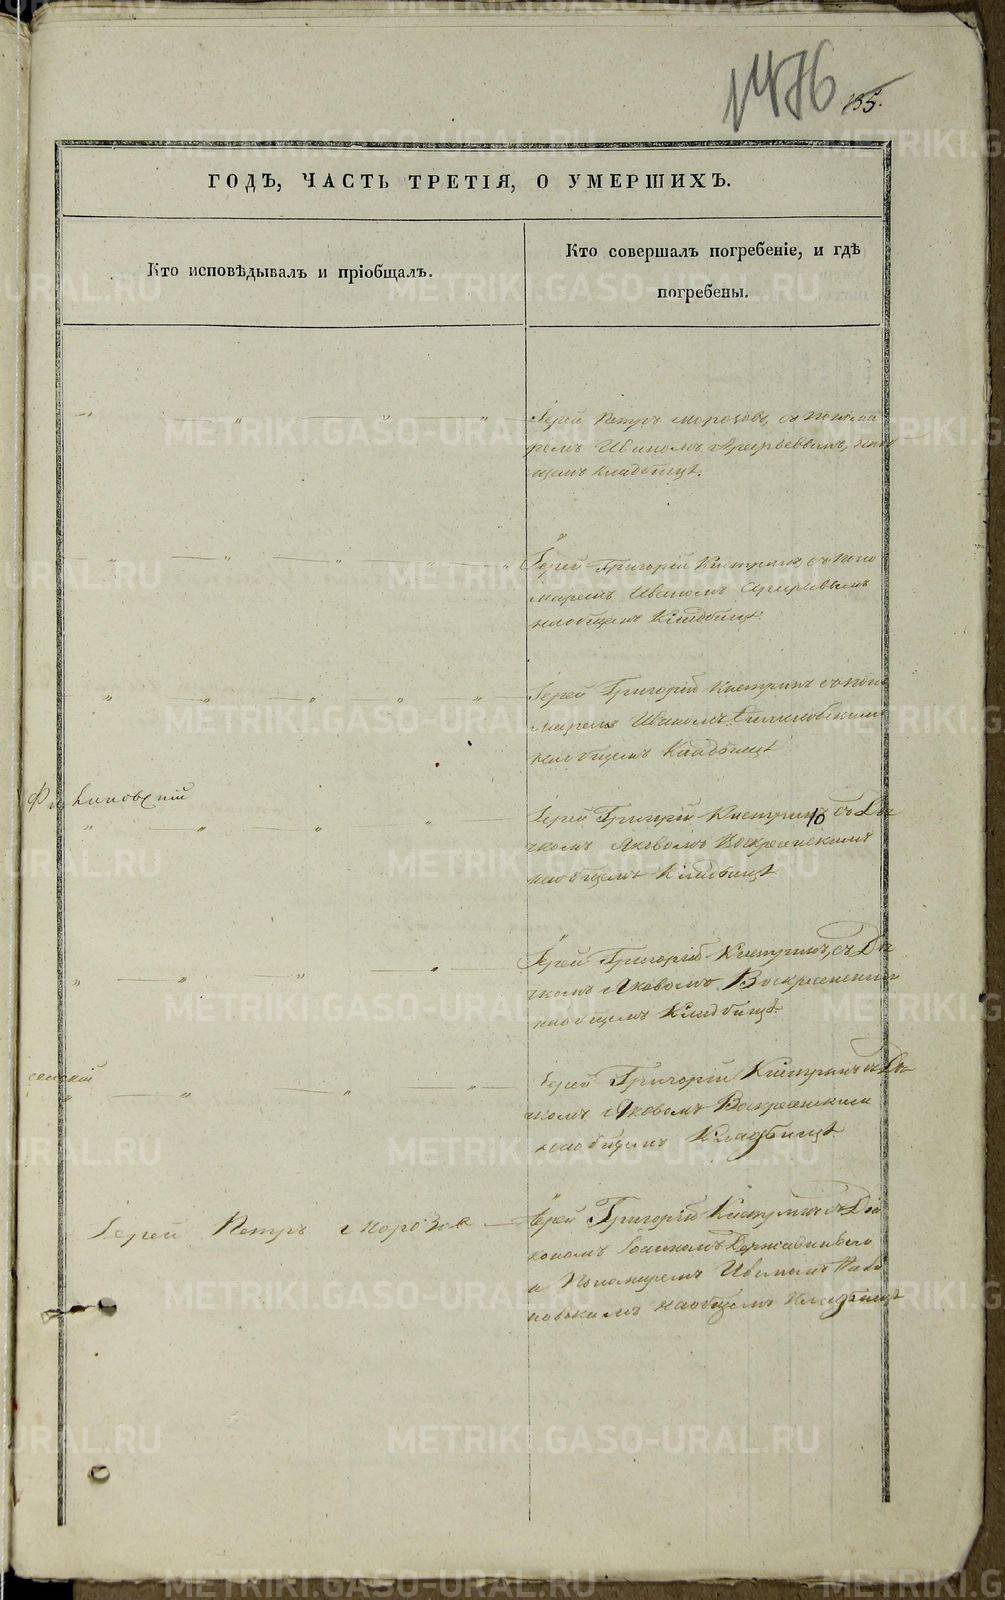 1476
135.
ГОДЪ, ЧАСТЬ ТРЕТІЯ, О УМЕРШИХЪ.
Кто исповѣдывалъ и пріобщалъ.
Кто совершалъ погребеніе, и гдѣ
погребены.
Іерей Петръ Морозовъ, съ Понома
ремъ Иваномъ
кладбищѣ.
Іерей Григорій Кистринъ, съ Поно
маремъ Иваномъ
на общемъ Кладбищѣ.
Іерей Григорій Кистринъ съ Поно
маремъ Иваномъ
на общемъ Кладбищѣ
Іерей Григорій Кистринъ съ Дья
чкомъ Яковомъ Воскресенскимъ
на общемъ Кладбищѣ
Іерей Григорій Кистринъ, съ Дья
чкомъ Яковомъ Воскресенскимъ
на общемъ Кладбищѣ.
сенскій
Іерей Григорій Кистринъ съ Дья
чкомъ Яковомъ Воскресенскимъ
на общемъ Кладбищѣ
Іерей Петръ Морозовъ
Іерей Григорій Кистринъ съ Діа
кономъ Іоанномъ
и Пономаремъ Иваномъ
на общемъ Кладбищѣ
METRIKI.GASO-URAL.RU